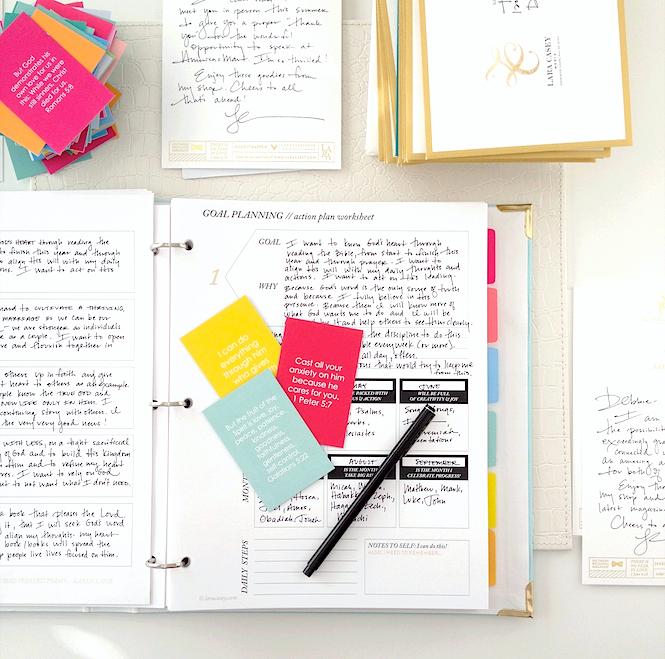 meet you in person this summer
to give you a proper "thank
you for the wonderful
opportunity to speak at
AmericasMart. I was thrilled!
Enjoy these goodies from
my shop. Cheers to all
that's ahead!
LARA CASEY
But God
demonstrates his
own love for us in
this: While we were
still sinners, Christ
died for us.
Romans 5:8
GOAL PLANNING // action plan worksheet
1
GOAL
I want to know God's heart through
reading the Bible, from start to finish this
year and through prayer. I want to
align His will with my daily thoughts and
actions. I want to act on this leading.
WHY
Because God's word is the only source of truth
and because I fully believe in His
presence. Because then I will know more of
what God wants me to do and I will be
it and help others to see Him clearly.
the discipline to do this
everyweek (or more).
all day, often.
that would try to help me
from this.
I can do
everything
through him
who gives
Cast all your
anxiety on him
because he
cares for you.
1 Peter 5:7
But the fruit of the
Spirit is love, joy,
peace, patience,
kindness,
goodness,
faithfulness,
gentleness and
self-control.
Galatians 5:22
MAY
PACKED WITH
AND ACTION
Psalms,
JUNE
WILL BE FULL
OF CREATIVITY & JOY
Song
Jeremiah
AUGUST
IS THE MONTH I
TAKE BIG
Micah,
Zeph,
Hosea,
Amos,
Obadiah, Jonah
SEPTEMBER
IS THE MONTH I
CELEBRATE PROGRESS!
Matthew, Mark,
Luke, John
DAILY STEPS
NOTES TO SELF: I can do this!
ALSO, I NEED TO REMEMBER...
GOD'S HEART through reading the
to finish this year and through
align His will with my daily
I want to act on this
to CULTIVATE A THRIVING,
MARRIAGE so we can be our
we are stronger as individuals
as a couple. I want to open
and flourish together in
others up in faith and give
heart to others as an example.
people know the TRUE GOD and
NEW LIFE ONLY IN HIM. I
continuing story with others. I
the very very good news!
WITH LESS, on a tight sacrificial
of God and to build his kingdom
him and to refine my heart
I want to rely on God
to not want what I don't need.
a book that pleases the Lord.
it, but I will seek God's word
align my thoughts. My heart
book/books will spread the
people live lives focused on Him.
Debbie-
I am
the possibilities
exceedingly
connected
an amazing
for both of
Enjoy th
my shop and
latest magazine
Cheers to